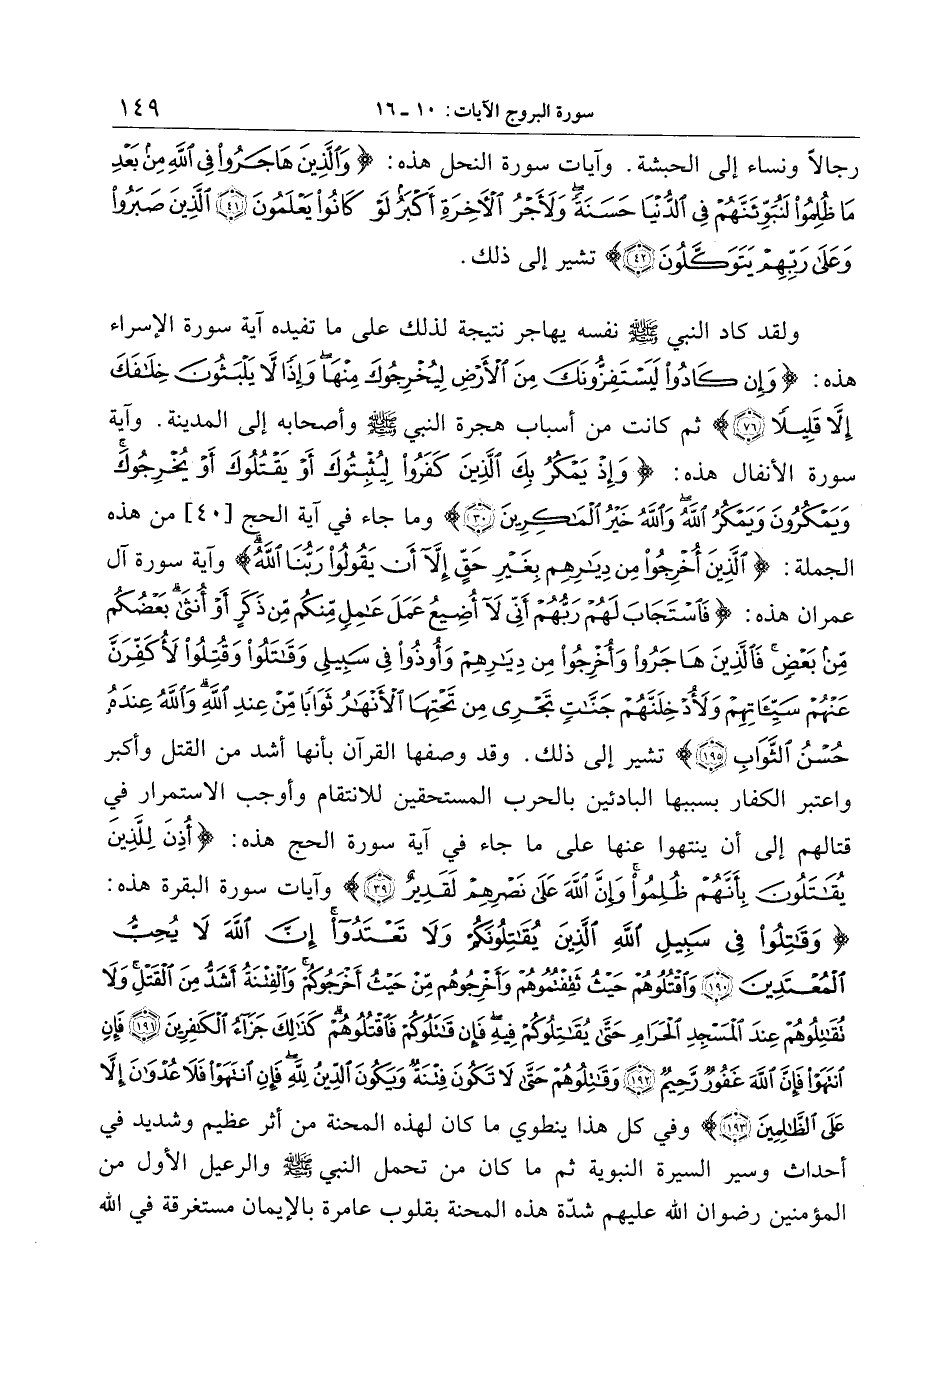 سورة البروج الآيات: ١٠ - ١٦ ١٤٩
رجالاً ونساء إلى الحبشة. وآيات سورة النحل هذه: ﴿ وَٱلَّذِينَ هَاجَرُوا۟ فِى ٱللَّهِ مِنۢ بَعْدِ
مَا ظُلِمُوا۟ لَنُبَوِّئَنَّهُمْ فِى ٱلدُّنْيَا حَسَنَةً ۖ وَلَأَجْرُ ٱلْـَٔاخِرَةِ أَكْبَرُ ۚ لَوْ كَانُوا۟ يَعْلَمُونَ ٤١ ٱلَّذِينَ صَبَرُوا۟
وَعَلَىٰ رَبِّهِمْ يَتَوَكَّلُونَ ٤٢﴾ تشير إلى ذلك.
ولقد كاد النبي ﷺ نفسه يهاجر نتيجة لذلك على ما تفيده آية سورة الإسراء
هذه: ﴿ وَإِن كَادُوا۟ لَيَسْتَفِزُّونَكَ مِنَ ٱلْأَرْضِ لِيُخْرِجُوكَ مِنْهَا ۖ وَإِذًا لَّا يَلْبَثُونَ خِلَٰفَكَ
إِلَّا قَلِيلًا ٧٦﴾ ثم كانت من أسباب هجرة النبي ﷺ وأصحابه إلى المدينة. وآية
سورة الأنفال هذه: ﴿ وَإِذْ يَمْكُرُ بِكَ ٱلَّذِينَ كَفَرُوا۟ لِيُثْبِتُوكَ أَوْ يَقْتُلُوكَ أَوْ يُخْرِجُوكَ ۚ
وَيَمْكُرُونَ وَيَمْكُرُ ٱللَّهُ ۖ وَٱللَّهُ خَيْرُ ٱلْمَٰكِرِينَ ٣٠﴾ وما جاء في آية الحج [٤٠] من هذه
الجملة: ﴿ ٱلَّذِينَ أُخْرِجُوا۟ مِن دِيَٰرِهِم بِغَيْرِ حَقٍّ إِلَّآ أَن يَقُولُوا۟ رَبُّنَا ٱللَّهُ ۗ﴾ وآية سورة آل
عمران هذه: ﴿ فَٱسْتَجَابَ لَهُمْ رَبُّهُمْ أَنِّى لَآ أُضِيعُ عَمَلَ عَٰمِلٍ مِّنكُم مِّن ذَكَرٍ أَوْ أُنثَىٰ ۖ بَعْضُكُم
مِّنۢ بَعْضٍ ۖ فَٱلَّذِينَ هَاجَرُوا۟ وَأُخْرِجُوا۟ مِن دِيَٰرِهِمْ وَأُوذُوا۟ فِى سَبِيلِى وَقَٰتَلُوا۟ وَقُتِلُوا۟ لَأُكَفِّرَنَّ
عَنْهُمْ سَيِّـَٔاتِهِمْ وَلَأُدْخِلَنَّهُمْ جَنَّٰتٍ تَجْرِى مِن تَحْتِهَا ٱلْأَنْهَٰرُ ثَوَابًا مِّنْ عِندِ ٱللَّهِ ۗ وَٱللَّهُ عِندَهُۥ
حُسْنُ ٱلثَّوَابِ ١٩٥﴾ تشير إلى ذلك. وقد وصفها القرآن بأنها أشد من القتل وأكبر
واعتبر الكفار بسببها البادئين بالحرب المستحقين للانتقام وأوجب الاستمرار في
قتالهم إلى أن ينتهوا عنها على ما جاء في آية سورة الحج هذه: ﴿ أُذِنَ لِلَّذِينَ
يُقَٰتَلُونَ بِأَنَّهُمْ ظُلِمُوا۟ ۚ وَإِنَّ ٱللَّهَ عَلَىٰ نَصْرِهِمْ لَقَدِيرٌ ٣٩﴾ وآيات سورة البقرة هذه:
﴿ وَقَٰتِلُوا۟ فِى سَبِيلِ ٱللَّهِ ٱلَّذِينَ يُقَٰتِلُونَكُمْ وَلَا تَعْتَدُوٓا۟ ۚ إِنَّ ٱللَّهَ لَا يُحِبُّ
ٱلْمُعْتَدِينَ ١٩٠ وَٱقْتُلُوهُمْ حَيْثُ ثَقِفْتُمُوهُمْ وَأَخْرِجُوهُم مِّنْ حَيْثُ أَخْرَجُوكُمْ ۚ وَٱلْفِتْنَةُ أَشَدُّ مِنَ ٱلْقَتْلِ ۚ وَلَا
تُقَٰتِلُوهُمْ عِندَ ٱلْمَسْجِدِ ٱلْحَرَامِ حَتَّىٰ يُقَٰتِلُوكُمْ فِيهِ ۖ فَإِن قَٰتَلُوكُمْ فَٱقْتُلُوهُمْ ۗ كَذَٰلِكَ جَزَآءُ ٱلْكَٰفِرِينَ ١٩١ فَإِنِ
ٱنتَهَوْا۟ فَإِنَّ ٱللَّهَ غَفُورٌ رَّحِيمٌ ١٩٢ وَقَٰتِلُوهُمْ حَتَّىٰ لَا تَكُونَ فِتْنَةٌ وَيَكُونَ ٱلدِّينُ لِلَّهِ ۖ فَإِنِ ٱنتَهَوْا۟ فَلَا عُدْوَٰنَ إِلَّا
عَلَى ٱلظَّٰلِمِينَ ١٩٣﴾ وفي كل هذا ينطوي ما كان لهذه المحنة من أثر عظيم وشديد في
أحداث وسير السيرة النبوية ثم ما كان من تحمل النبي ﷺ والرعيل الأول من
المؤمنين رضوان الله عليهم شدّة هذه المحنة بقلوب عامرة بالإيمان مستغرقة في الله